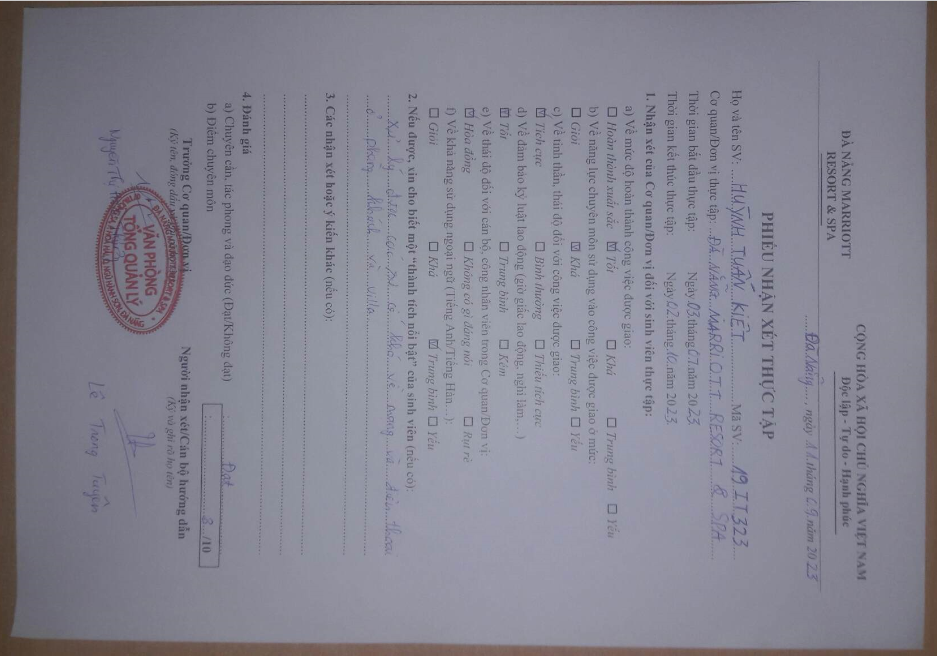 ĐÀ NẴNG MARRIOTT
RESORT & SPA
CỘNG HÒA XÃ HỘI CHỦ NGHĨA VIỆT NAM
Độc lập - Tự do - Hạnh phúc
Đà Nẵng, ngày 11 tháng 09 năm 2023
PHIẾU NHẬN XÉT THỰC TẬP
Họ và tên SV: HUỲNH TUẤN KIỆT Mã SV: 19IT323
Cơ quan/Đơn vị thực tập: ĐÀ NẴNG MARRIOTT RESORT & SPA
Thời gian bắt đầu thực tập: Ngày 03 tháng 07 năm 2023
Thời gian kết thúc thực tập: Ngày 02 tháng 10 năm 2023
1. Nhận xét của Cơ quan/Đơn vị đối với sinh viên thực tập:
a) Về mức độ hoàn thành công việc được giao:
☐ Hoàn thành xuất sắc ☑ Tốt ☐ Khá ☐ Trung bình ☐ Yếu
b) Về năng lực chuyên môn sử dụng vào công việc được giao ở mức:
☐ Giỏi ☑ Khá ☐ Trung bình ☐ Yếu
c) Về tinh thần, thái độ đối với công việc được giao:
☑ Tích cực ☐ Bình thường ☐ Thiếu tích cực
d) Về đảm bảo kỷ luật lao động (giờ giấc lao động, nghỉ làm,...)
☑ Tốt ☐ Trung bình ☐ Kém
e) Về thái độ đối với cán bộ, công nhân viên trong Cơ quan/Đơn vị:
☑ Hòa đồng ☐ Không có gì đáng nói ☐ Rụt rè
f) Về khả năng sử dụng ngoại ngữ (Tiếng Anh/Tiếng Hàn...):
☐ Giỏi ☐ Khá ☑ Trung bình ☐ Yếu
2. Nếu được, xin cho biết một "thành tích nổi bật" của sinh viên (nếu có):
Xử lý được các sự cố khá về mạng và điện thoại
ở phòng khách và villa
3. Các nhận xét hoặc ý kiến khác (nếu có):
4. Đánh giá
a) Chuyên cần, tác phong và đạo đức (Đạt/Không đạt) Đạt
b) Điểm chuyên môn 8 /10
Trưởng Cơ quan/Đơn vị
(Ký tên, đóng dấu)
Người nhận xét/Cán bộ hướng dẫn
(Ký và ghi rõ họ tên)
VĂN PHÒNG
TỔNG QUẢN LÝ
Nguyễn Thị
Lê Trọng Tuyên